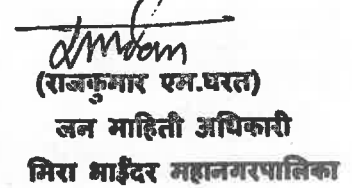 (राजकुमार एम.घरत)
जन माहिती अधिकारी
मिरा भाईंदर महानगरपालिका